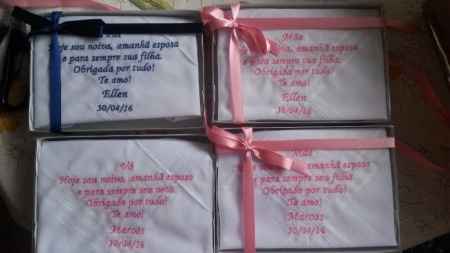 Hoje sou noiva, amanhã esposa
e para sempre sua filha.
Obrigada por tudo!
Te amo!
Ellen
30/04/16
Mãe
noiva, amanhã esposa
e para sempre sua filha.
Obrigada por tudo!
Te amo!
Ellen
30/04/16
Vó
Hoje sou noivo, amanhã esposo
e para sempre seu neto.
Obrigado por tudo!
Te amo!
Marcos
30/04/16
Mãe
amanhã esposo
e para sempre seu filho
Obrigado por tudo!
Te amo!
Marcos
30/04/16